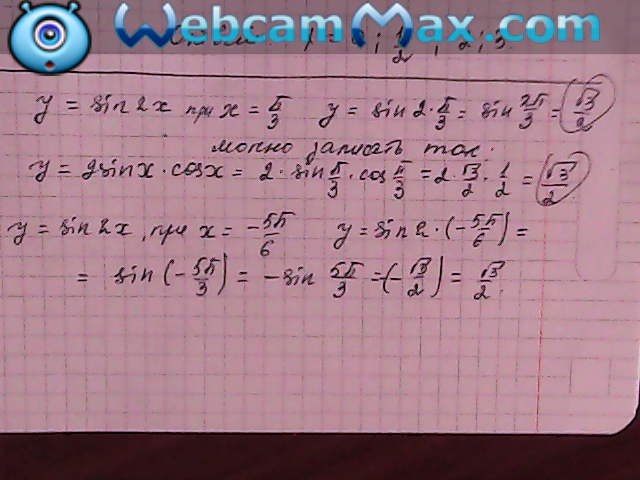 WebcamMax.com
1/2 ; 2 ; 3.
y = sin 2x при x = π/3 y = sin 2·π/3 = sin 2π/3 = √3/2
можно записать так:
y = 2sinx·cosx = 2·sin π/3·cos π/3 = 2·√3/2·1/2 = √3/2
y = sin 2x, при x = -5π/6 y = sin 2·(-5π/6) =
= sin(-5π/3) = -sin 5π/3 = -(-√3/2) = √3/2.